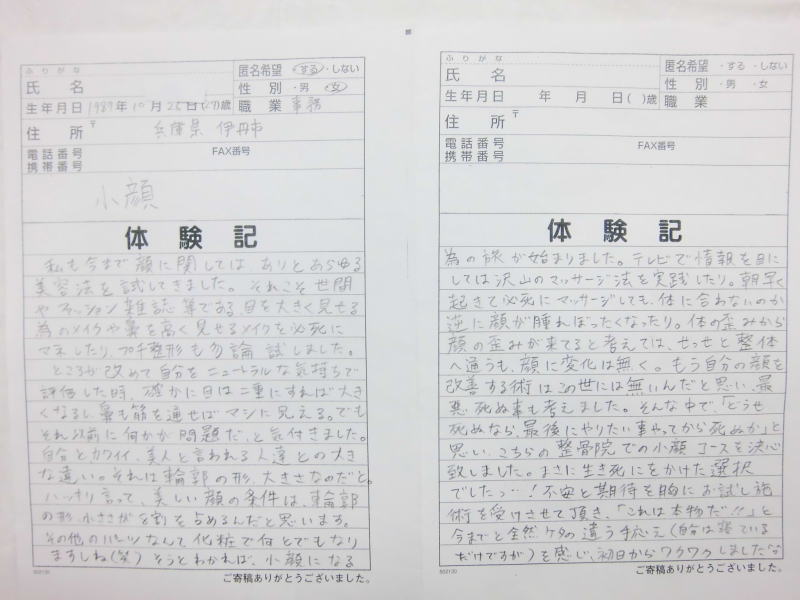 ふりがな
氏名
匿名希望 ・する・しない
性別 ・男 ・女
生年月日 1989年10月25日(27)歳
職業 事務
住所 〒 兵庫県 伊丹市
電話番号
携帯番号
FAX番号
小顔
体験記
私も今まで顔に関しては ありとあらゆる
美容法を試してきました。それこそ世間
やファッション雑誌等である、目を大きく見せる
為のメイクや鼻を高く見せるメイクを必死に
マネしたり、プチ整形も勿論試しました。
ところが改めて自分をニュートラルな気持ちで
評価した時、確かに目は二重にすれば大き
くなるし、鼻も筋を通せばマシに見える。でも
それ以前に何かが問題だ、と気付きました。
自分とカワイイ、美人と言われる人達との大き
な違い。それは輪郭の形、大きさなのだと。
ハッキリ言って、美しい顔の条件は、輪郭
の形、小ささが8割を占めるんだと思います。
その他のパーツなんて化粧で何とでもなり
ますしね(笑) そうとわかれば、小顔になる
ご寄稿ありがとうございました。
502130
ふりがな
氏名
匿名希望 ・する ・しない
性別 ・男 ・女
生年月日 年 月 日( )歳
職業
住所 〒
電話番号
携帯番号
FAX番号
体験記
為の旅が始まりました。テレビで情報を目に
しては沢山のマッサージ法を実践したり。朝早く
起きて必死にマッサージしても、体に合わないのか
逆に顔が腫れぼったくなったり。体の歪みから
顔の歪みが来てると考えては、せっせと整体
へ通うも、顔に変化は無く。もう自分の顔を
改善する術はこの世には無いんだと思い、最
悪死ぬ事も考えました。そんな中で、「どうせ
死ぬなら、最後にやりたい事やってから死ぬか」と
思い、こちらの整骨院での小顔コースを決心
致しました。まさに生き死にをかけた選択
でしたっ…！不安と期待を胸にお試し施
術を受けさせて頂き、「これは本物だ!!」と
今までと全然ケタの違う手応え(自分は寝ている
だけですが)を感じ、初日からワクワクしました
ご寄稿ありがとうございました。
502130